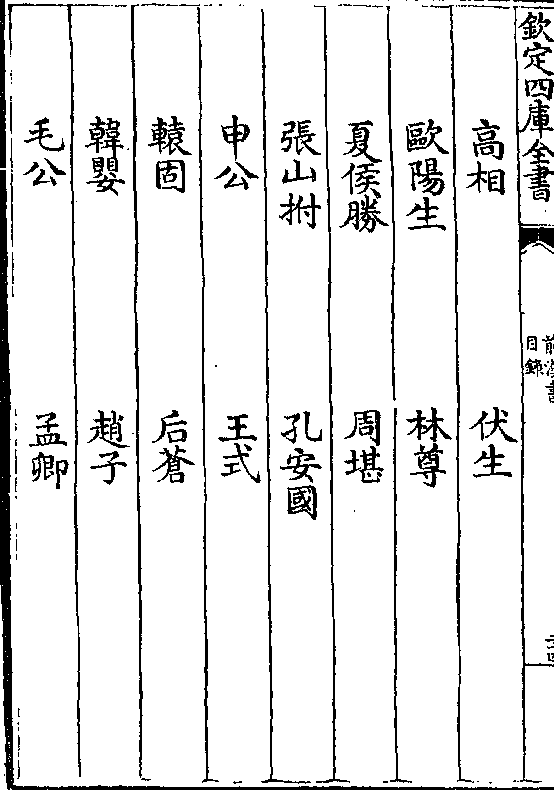 欽定四庫全書
前漢書
目錄
高相 伏生
歐陽生 林尊
夏侯勝 周堪
張山拊 孔安國
申公 王式
轅固 后蒼
韓嬰 趙子
毛公 孟卿